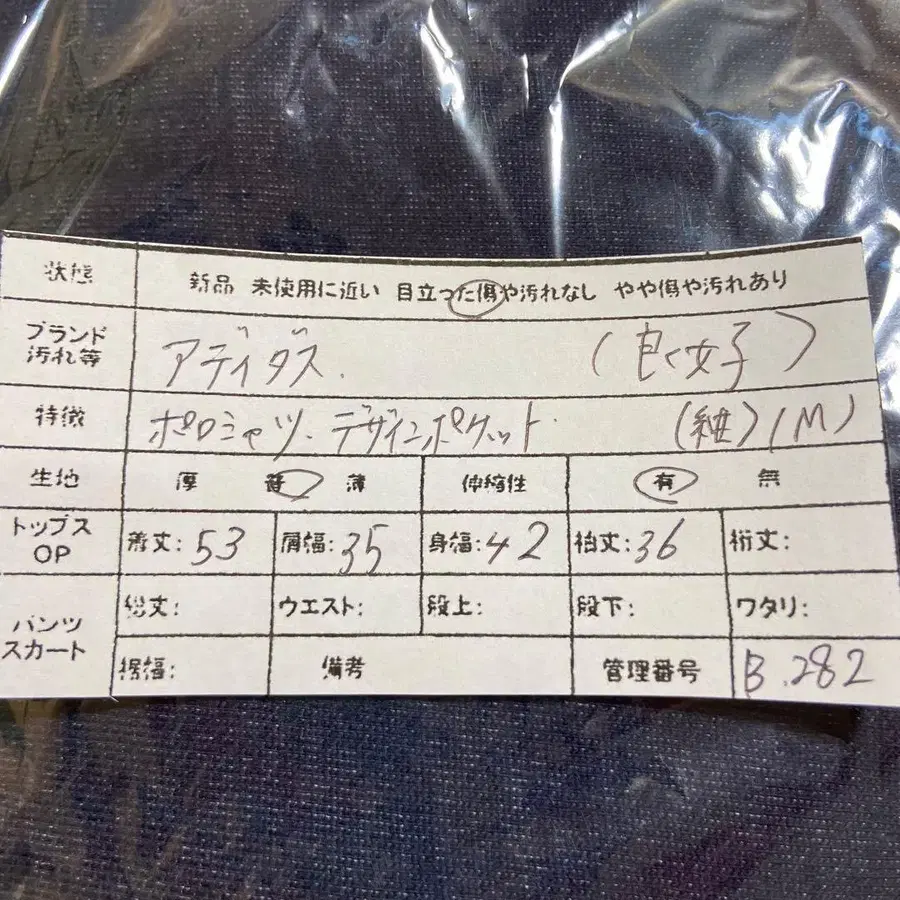 状態 新品 未使用に近い 目立った傷や汚れなし やや傷や汚れあり
ブランド 汚れ等 アディダス. (良く女子)
特徴 ポロシャツ.デザインポケット (紺)/M)
生地 厚 普 薄 伸縮性 有 無
トップス OP 着丈:53 肩幅:35 身幅:42 袖丈:36 裄丈:
パンツ スカート 総丈: ウエスト: 股上: 股下: ワタリ:
裾幅: 備考 管理番号 B.282